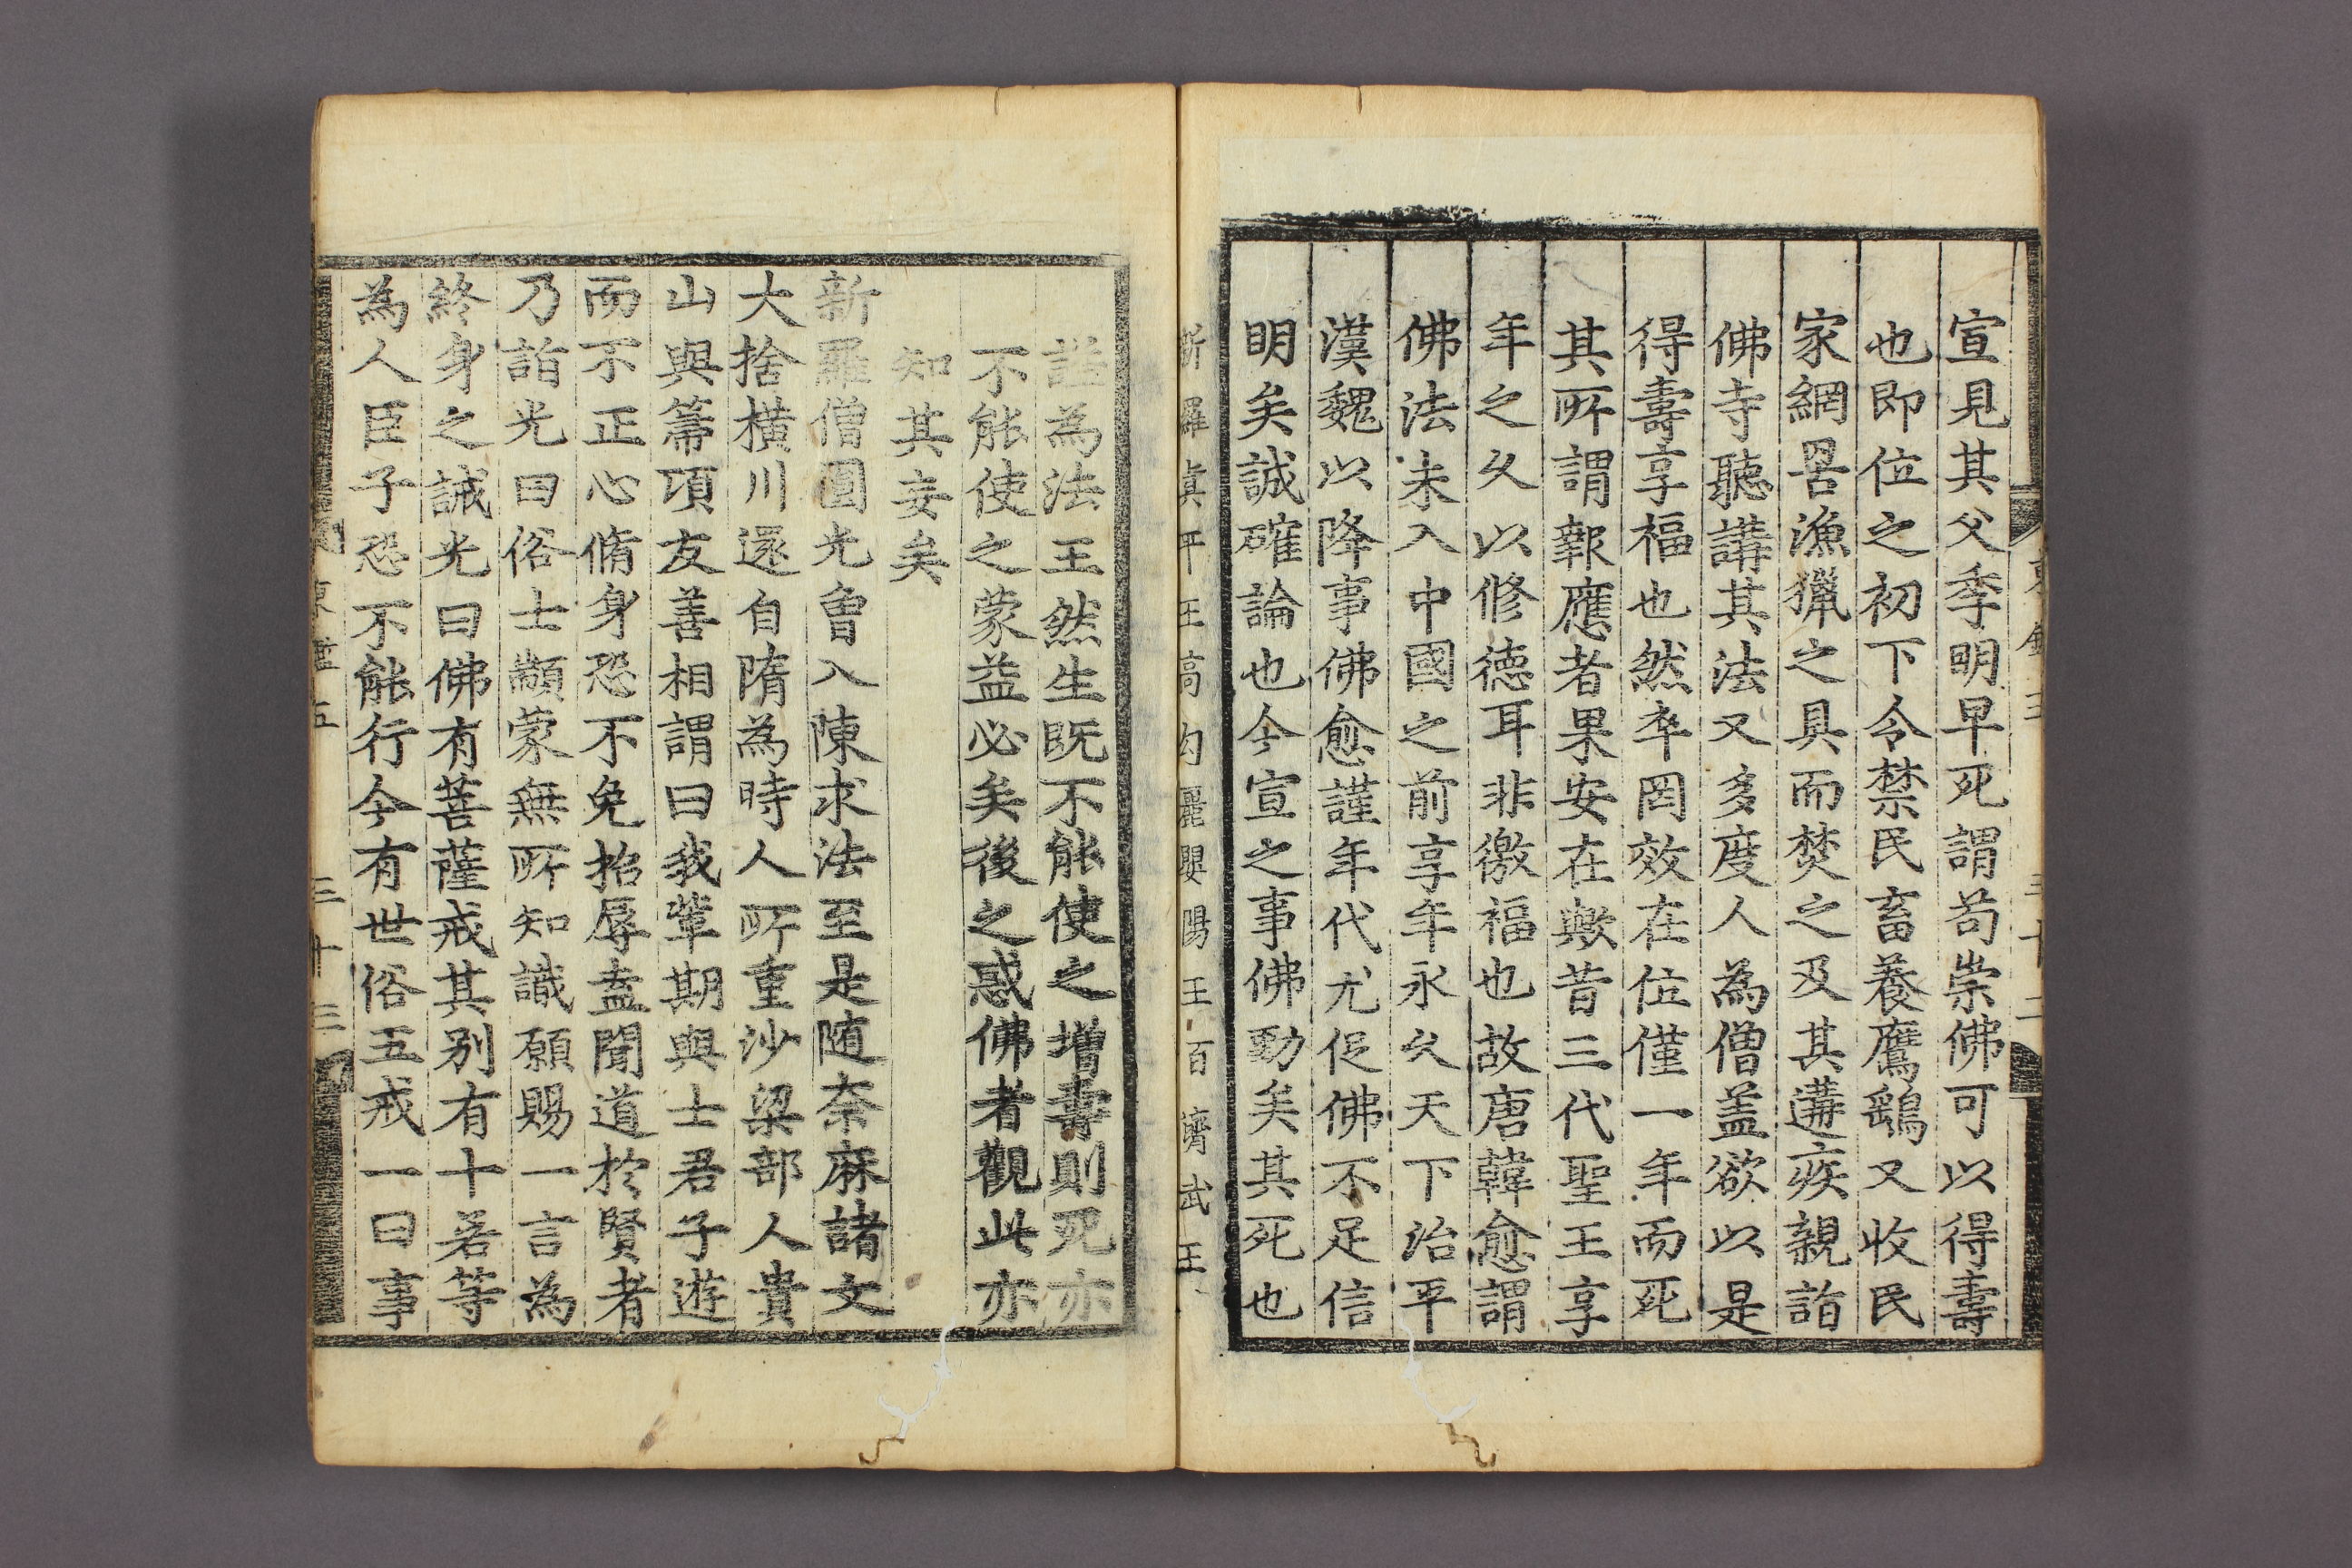 宣見其父季明早死謂苟崇佛可以得壽
也即位之初下令禁民畜養鷹鷂又收民
家網罟漁獵之具而焚之及其遘疾親詣
佛寺聽講其法又多度人為僧盖欲以是
得壽享福也然卒罔效在位僅一年而死
其所謂報應者果安在歟昔三代聖王享
年之久以修德耳非徼福也故唐韓愈謂
佛法未入中國之前享年永久天下治平
漢魏以降事佛愈謹年代尤促佛不足信
明矣誠確論也今宣之事佛勤矣其死也
新羅眞平王高勾麗嬰陽王百濟武王
諡為法王然生既不能使之增壽則死亦
不能使之蒙益必矣後之惑佛者觀此亦
知其妄矣
新羅僧圓光曾入陳求法至是随奈麻諸文
大捨橫川還自隋為時人所重沙梁部人貴
山與箒項友善相謂曰我輩期與士君子遊
而不正心脩身恐不免招辱盍聞道於賢者
乃詣光曰俗士顓蒙無所知識願賜一言為
終身之誡光曰佛有菩薩戒其别有十若等
為人臣子恐不能行今有世俗五戒一曰事
東鑑五
三十三